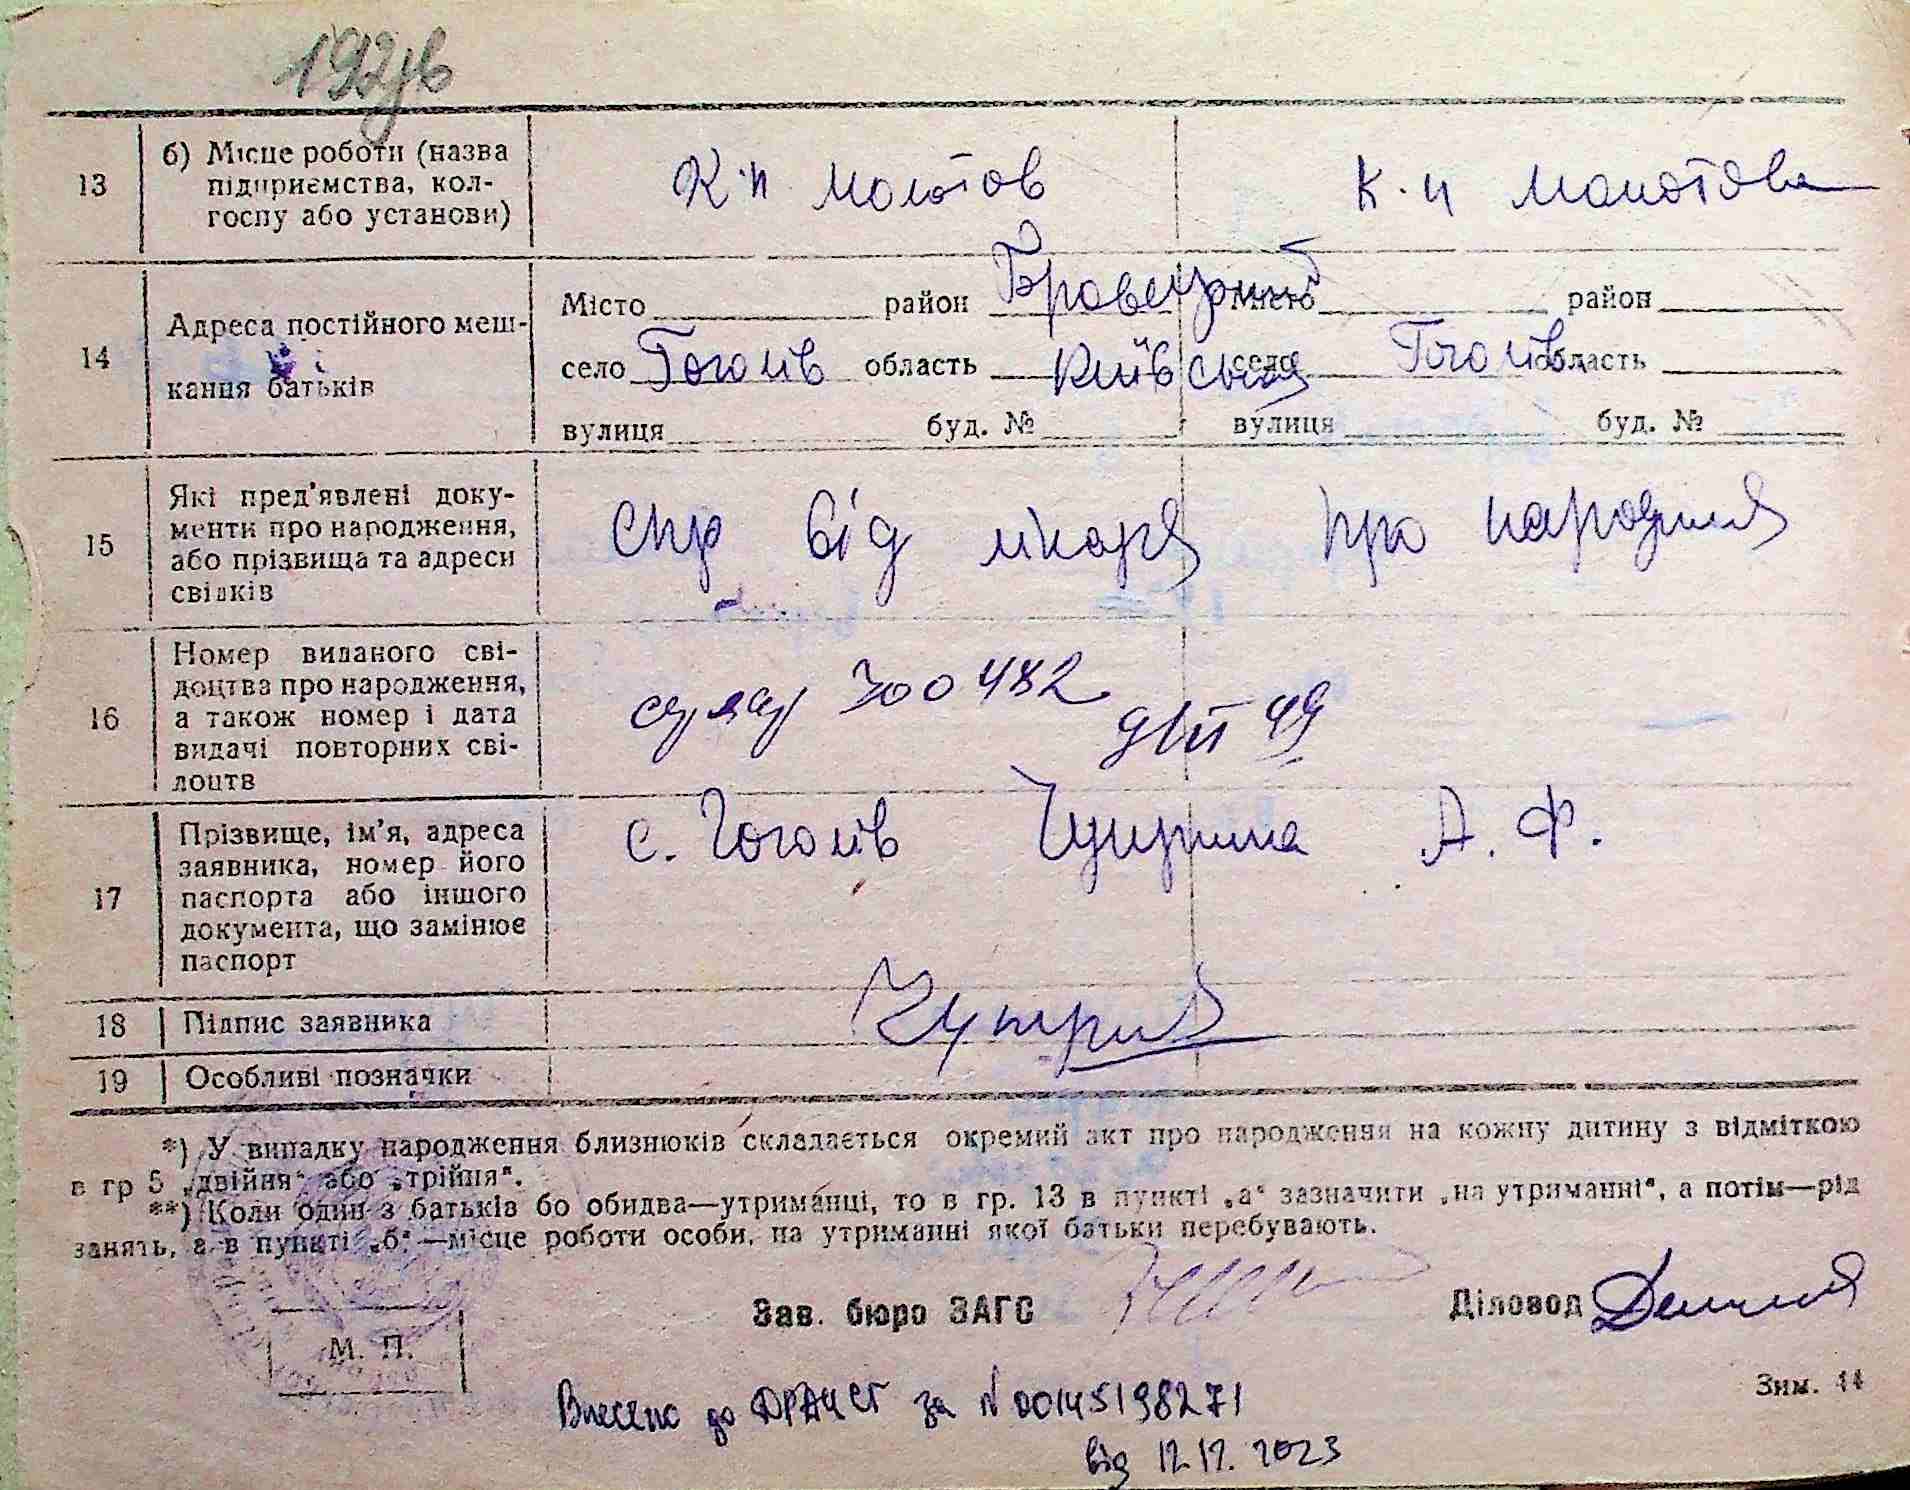 192зв
13 б) Місце роботи (назва підприємства, колгоспу або установи)
К-п Молотов
К-п Молотова
14 Адреса постійного мешкання батьків
Місто район Броварський Місто район
село Гоголів область Київська село Гоголів область
вулиця буд. № вулиця буд. №
15 Які пред'явлені документи про народження, або прізвища та адреси свідків
Спр від лікаря про народження
16 Номер виданого свідоцтва про народження, а також номер і дата видачі повторних свідоцтв
300482 49
17 Прізвище, ім'я, адреса заявника, номер його паспорта або іншого документа, що замінює паспорт
с. Гоголів Чуприна А. Ф.
18 Підпис заявника
19 Особливі позначки
*) У випадку народження близнюків складається окремий акт про народження на кожну дитину з відміткою
в гр 5 „двійня“ або „трійня“.
**) Коли один з батьків бо обидва—утриманці, то в гр. 13 в пункті „а“ зазначити „на утриманні“, а потім—рід
занять, а в пункті „б“—місце роботи особи, на утриманні якої батьки перебувають.
Зав. бюро ЗАГС
Діловод
М. П.
Зим. 44
Внесено до ДРАЦСГ за N 00145198271
від 12.12.2023